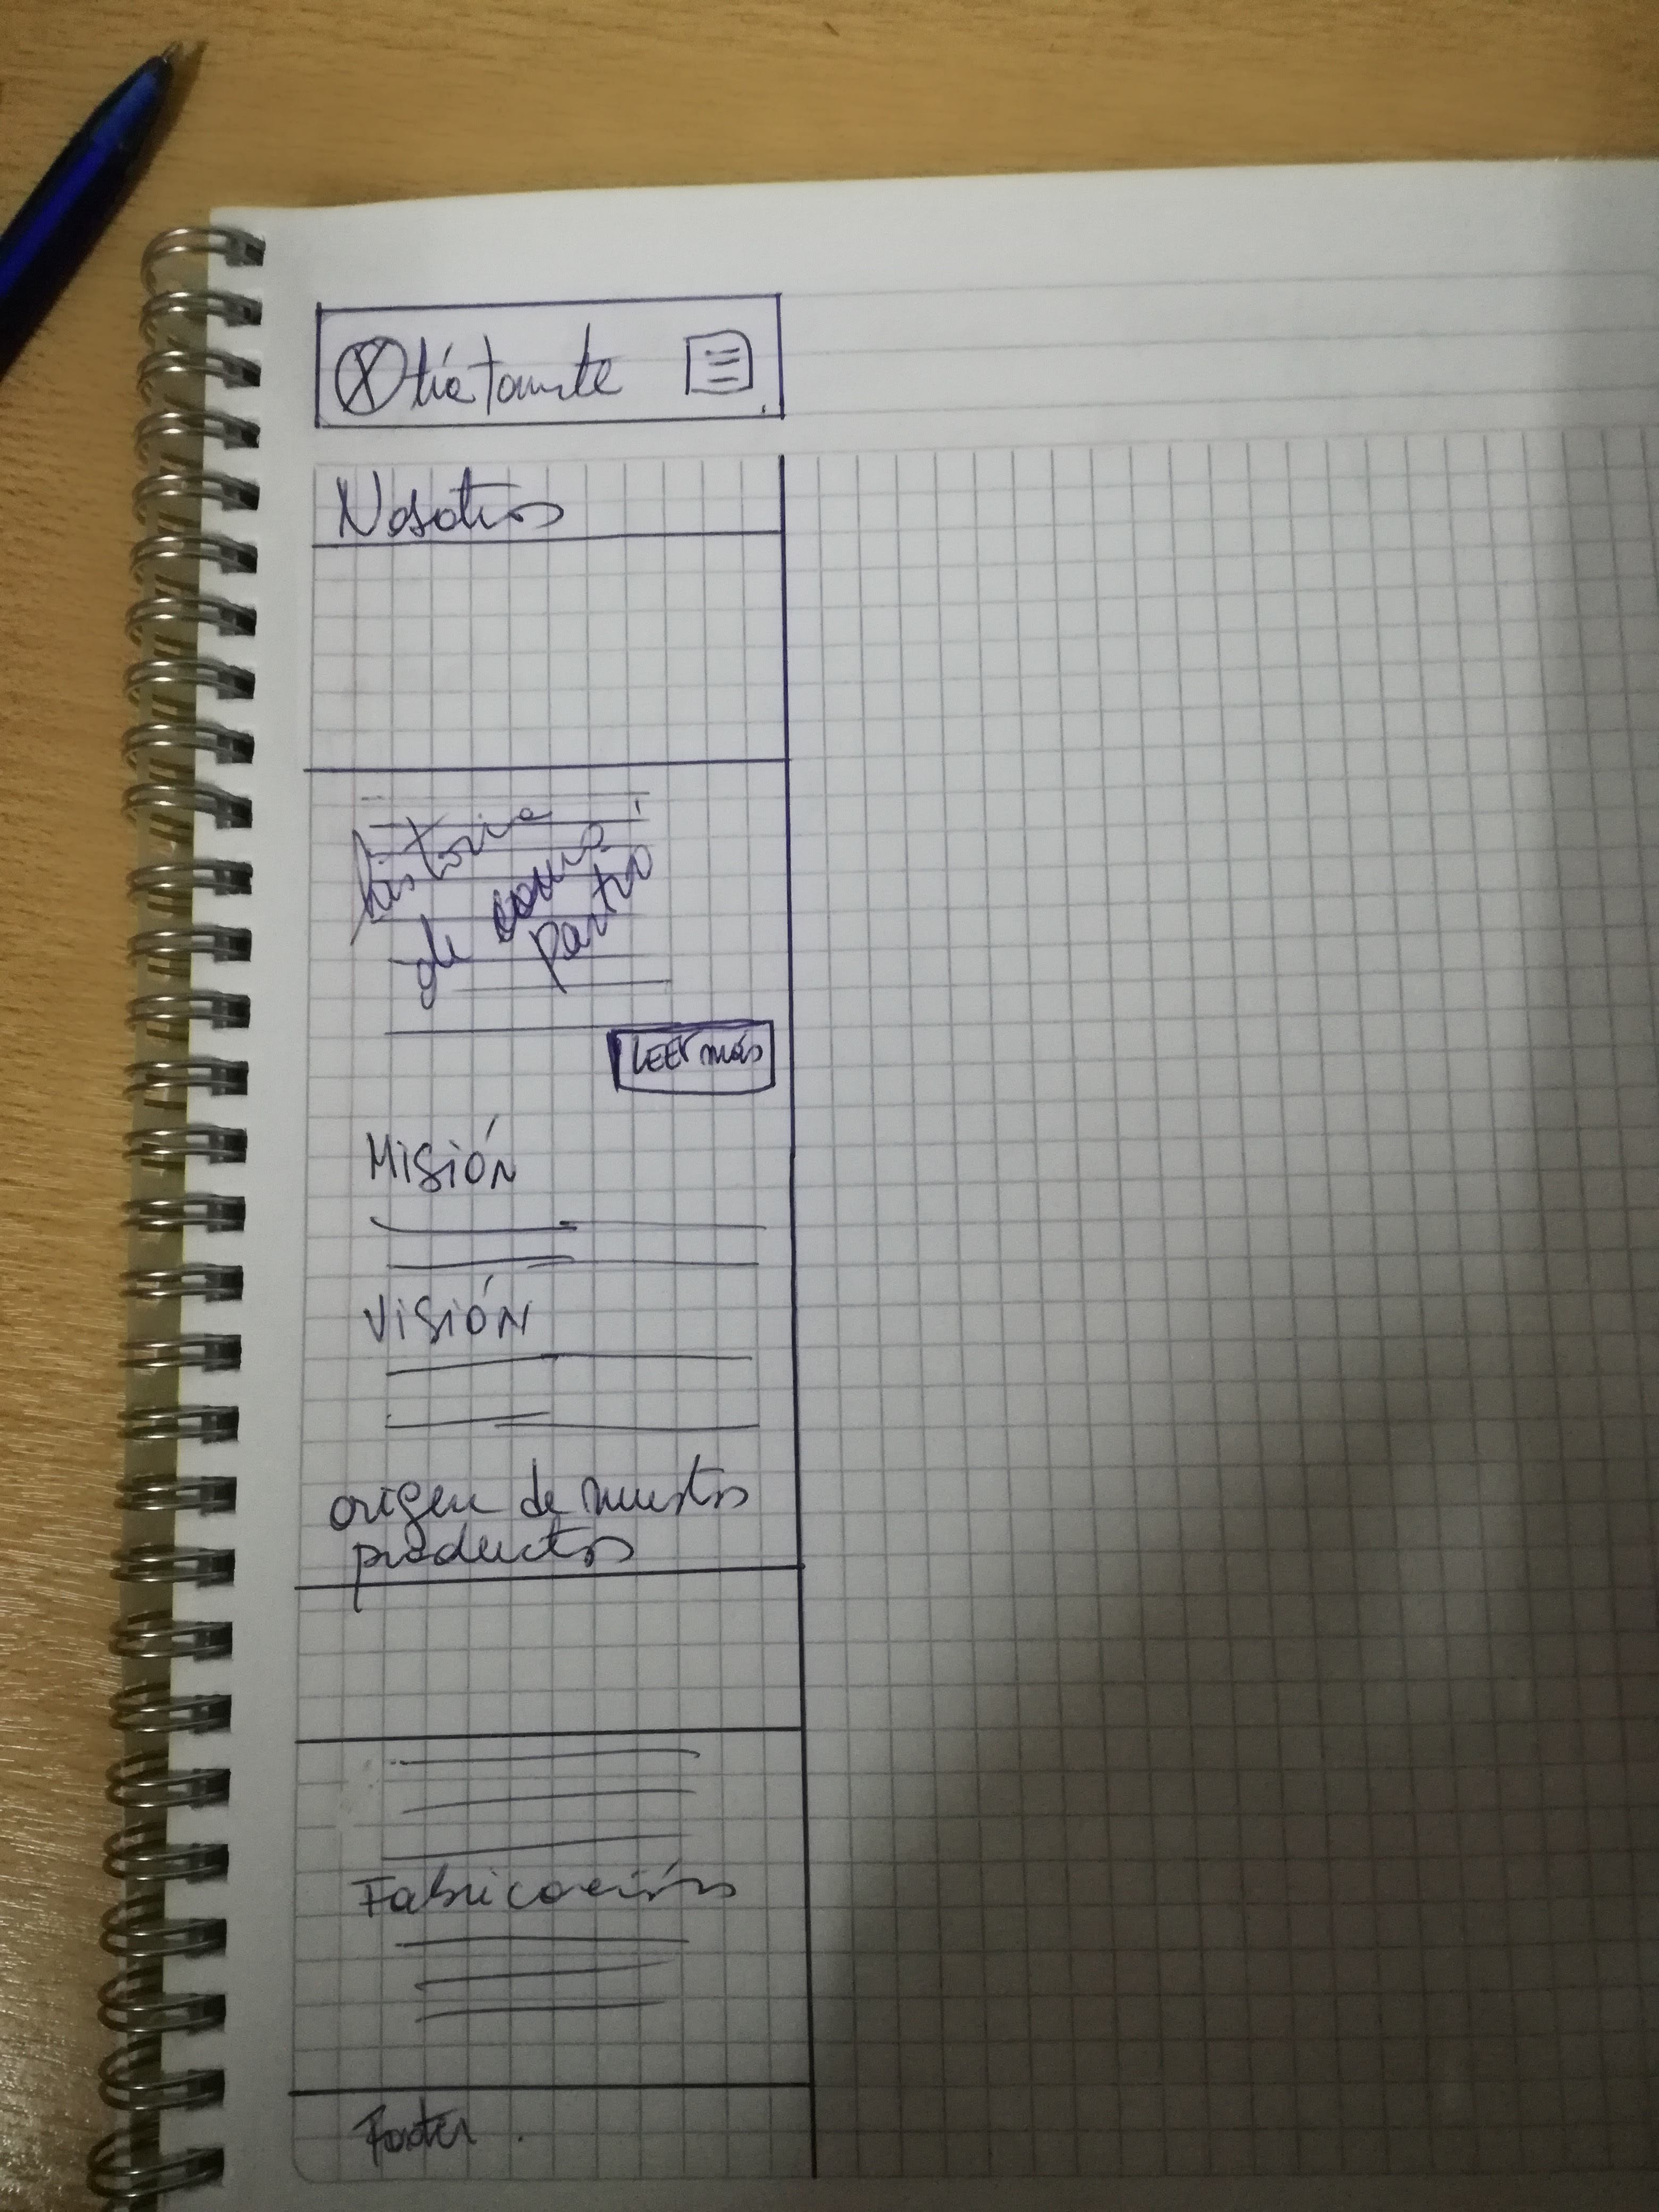 Nosotros
historia
de como
partio
LEER más
Misión
Visión
origen de nuestros
productos
Fabricación
Footer